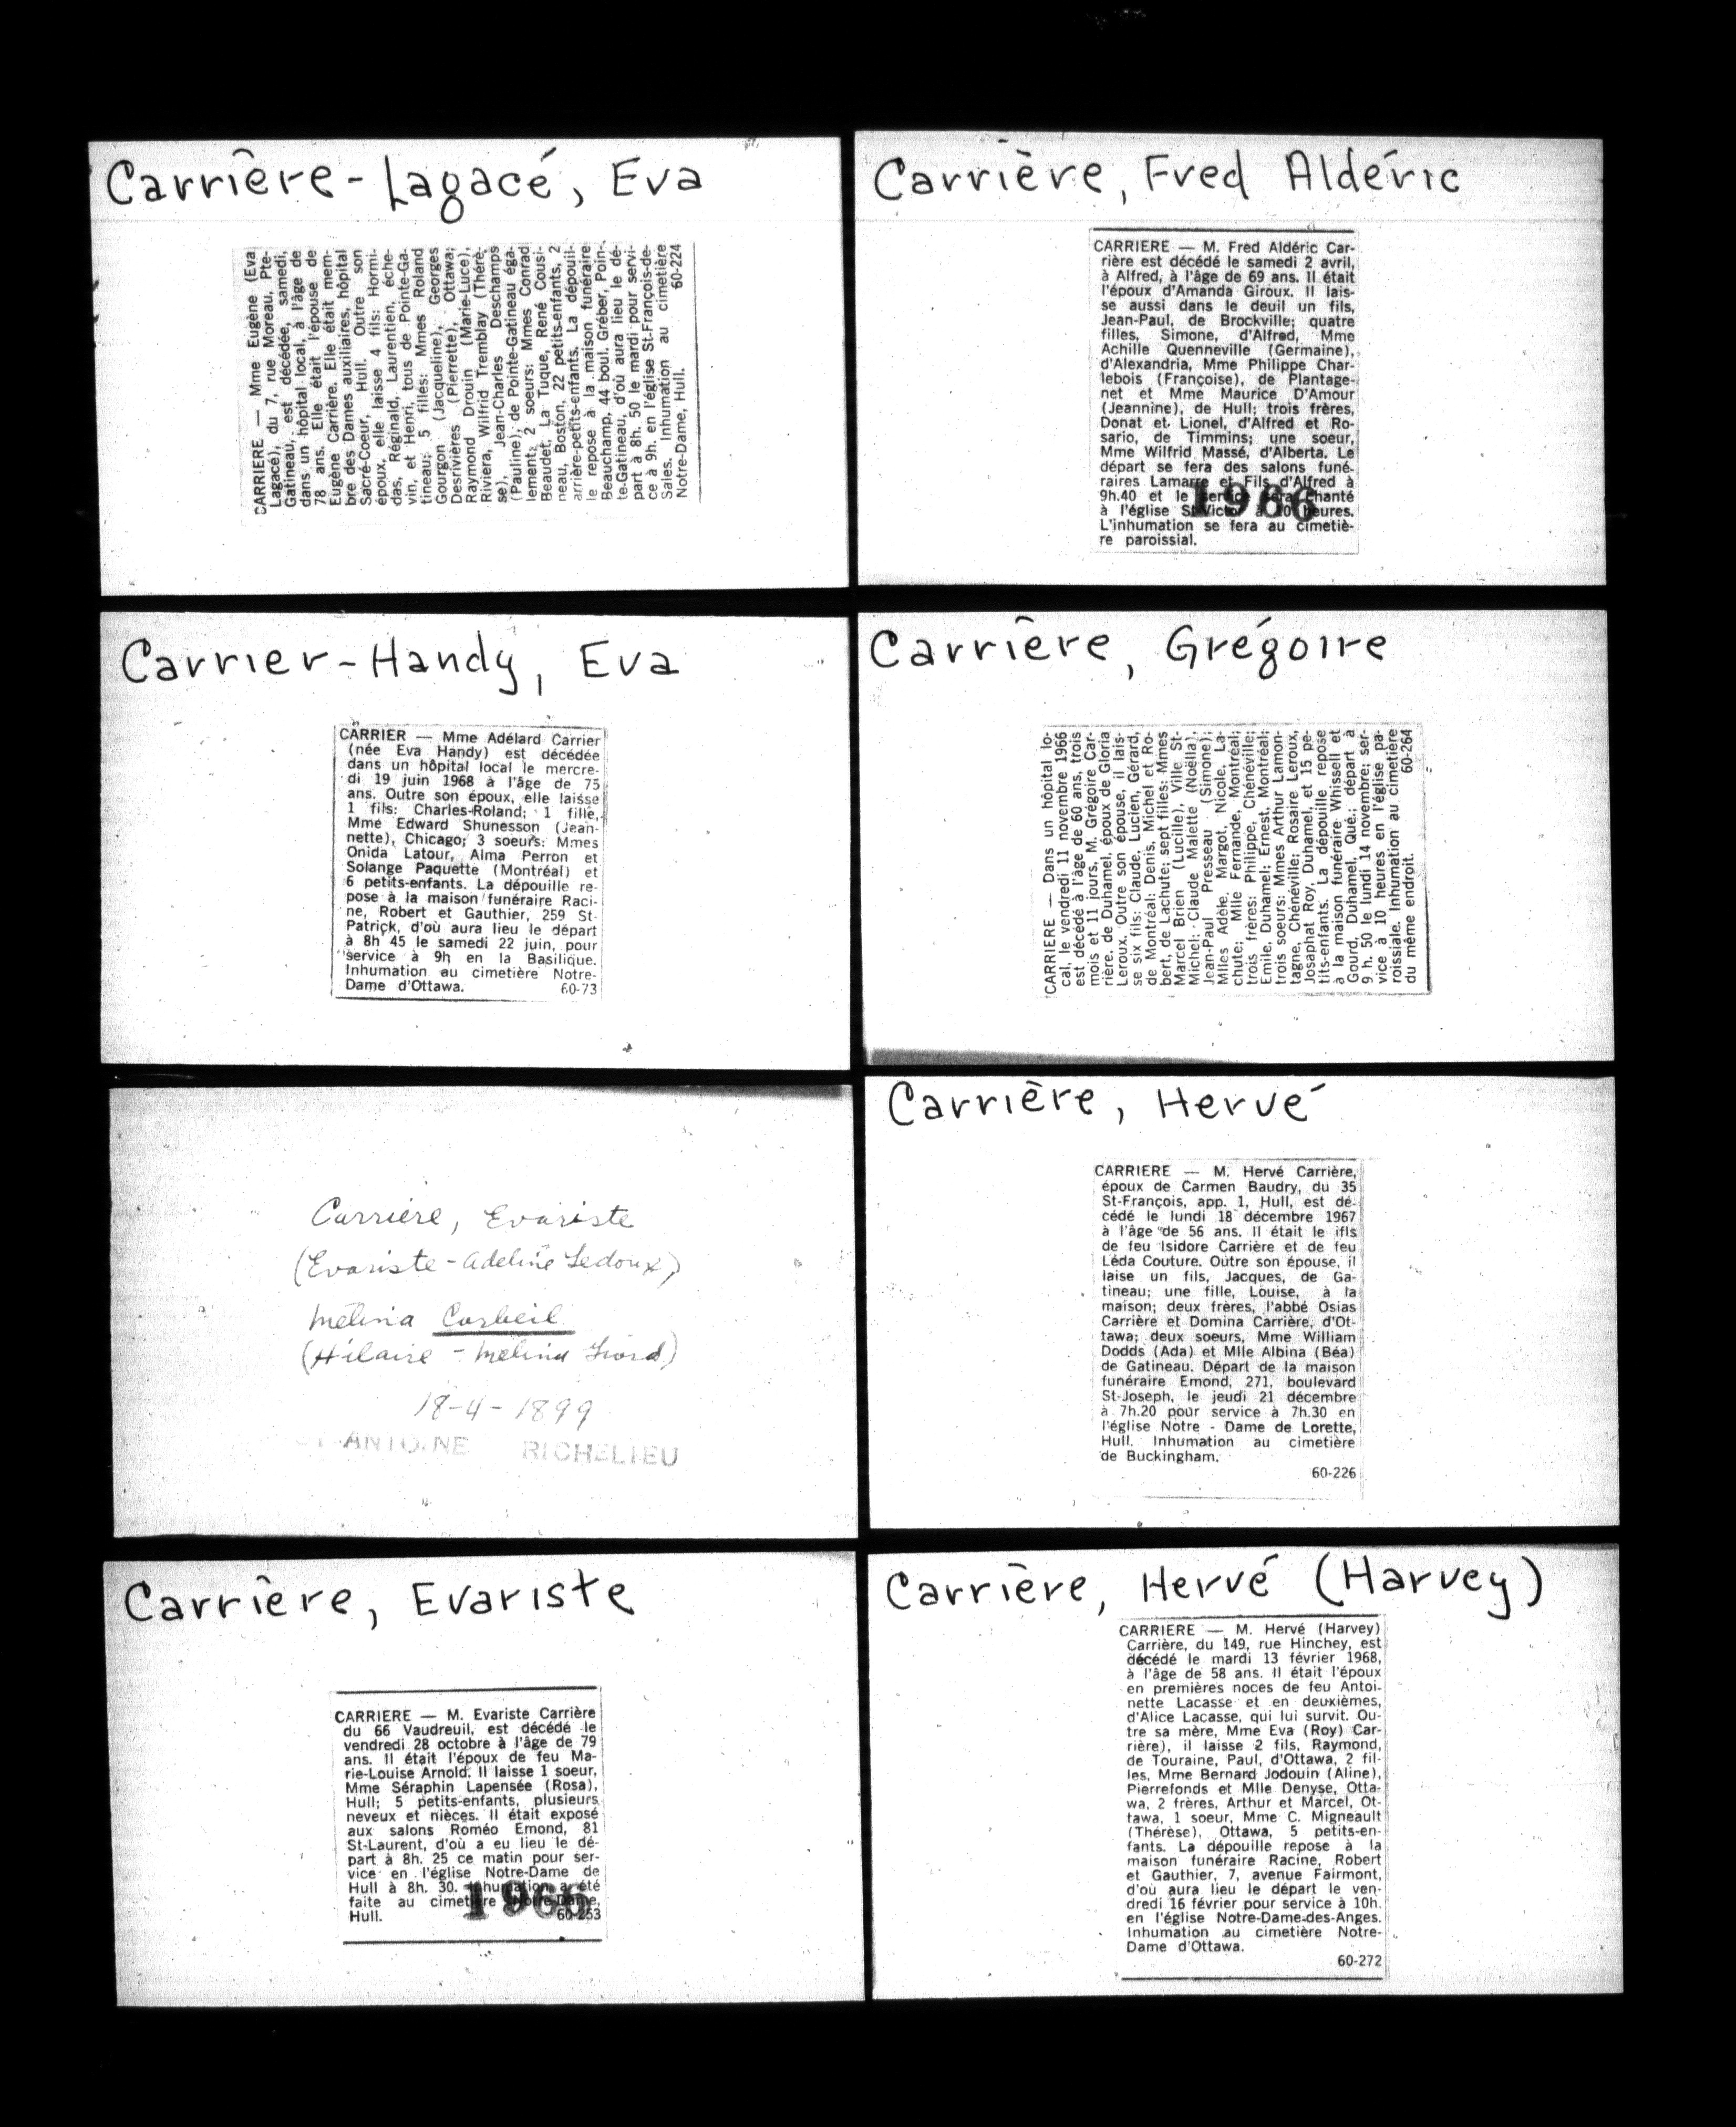 Carrière-Lagacé, Eva
CARRIERE — Mme Eugène (Eva
Lagacé), du 7, rue Moreau, Pte-
Gatineau, est décédée, samedi,
dans un hôpital local, à l'âge de
78 ans. Elle était l'épouse de
Eugène Carrière. Elle était mem-
bre des Dames auxiliaires, hôpital
Sacré-Coeur, Hull. Outre son
époux, elle laisse 4 fils: Hormi-
das, Réginald, Laurentien, éche-
vin, et Henri, tous de Pointe-Ga-
tineau; 5 filles: Mmes Roland
Gourgon (Jacqueline), Georges
Desrivières (Pierrette), Ottawa;
Raymond Drouin (Marie-Luce),
Riviera, Wilfrid Tremblay (Thérè-
se), Jean-Charles Deschamps
(Pauline), de Pointe-Gatineau éga-
lement; 2 soeurs: Mmes Conrad
Beaudet, La Tuque, René Cousi-
neau, Boston, 22 petits-enfants, 2
arrière-petits-enfants. La dépouil-
le repose à la maison funéraire
Beauchamp, 44 boul. Gréber, Poin-
te-Gatineau, d'où aura lieu le dé-
part à 8h. 50 le mardi pour servi-
ce à 9h. en l'église St-François-de-
Sales. Inhumation au cimetière
Notre-Dame, Hull. 60-224
Carrière, Fred Aldéric
CARRIERE — M. Fred Aldéric Car-
rière est décédé le samedi 2 avril,
à Alfred, à l'âge de 69 ans. Il était
l'époux d'Amanda Giroux. Il lais-
se aussi dans le deuil un fils,
Jean-Paul, de Brockville; quatre
filles, Simone, d'Alfred, Mme
Achille Quenneville (Germaine),
d'Alexandria, Mme Philippe Char-
lebois (Françoise), de Plantage-
net et Mme Maurice D'Amour
(Jeannine), de Hull; trois frères,
Donat et Lionel, d'Alfred et Ro-
sario, de Timmins; une soeur,
Mme Wilfrid Massé, d'Alberta. Le
départ se fera des salons funé-
raires Lamarre et Fils d'Alfred à
9h.40 et le service sera chanté
à l'église St-Victor à 10 heures.
L'inhumation se fera au cimetiè-
re paroissial.
1966
Carrier-Handy, Eva
CARRIER — Mme Adélard Carrier
(née Eva Handy) est décédée
dans un hôpital local le mercre-
di 19 juin 1968 à l'âge de 75
ans. Outre son époux, elle laisse
1 fils: Charles-Roland; 1 fille,
Mme Edward Shunesson (Jean-
nette), Chicago; 3 soeurs: Mmes
Onida Latour, Alma Perron et
Solange Paquette (Montréal) et
6 petits-enfants. La dépouille re-
pose à la maison funéraire Raci-
ne, Robert et Gauthier, 259 St-
Patrick, d'où aura lieu le départ
à 8h 45 le samedi 22 juin, pour
service à 9h en la Basilique.
Inhumation au cimetière Notre-
Dame d'Ottawa. 60-73
Carrière, Grégoire
CARRIERE — Dans un hôpital lo-
cal, le vendredi 11 novembre 1966
est décédé à l'âge de 60 ans, trois
mois et 11 jours, M. Grégoire Car-
rière, de Duhamel, époux de Gloria
Leroux. Outre son épouse, il lais-
se six fils: Claude, Lucien, Gérard,
de Montréal; Denis, Michel et Ro-
bert, de Lachute; sept filles: Mmes
Marcel Brien (Lucille), Ville St-
Michel; Claude Malette (Noëlla),
Jean-Paul Presseau (Simone);
Mlles Adèle, Margot, Nicole, La-
chute; Mlle Fernande, Montréal;
trois frères: Philippe, Chénéville;
Emile, Duhamel; Ernest, Montréal;
trois soeurs: Mmes Arthur Lamon-
tagne, Chénéville; Rosaire Leroux,
Josaphat Roy, Duhamel, et 15 pe-
tits-enfants. La dépouille repose
à la maison funéraire Whissell et
Gourd, Duhamel, Qué.; départ à
9 h. 50 le lundi 14 novembre; ser-
vice à 10 heures en l'église pa-
roissiale. Inhumation au cimetière
du même endroit. 60-264
Carrière, Evariste
(Evariste - Adeline Ledoux)
Mélina Corbeil
(Hilaire - Mélina)
18-4-1899
ANTOINE RICHELIEU
Carrière, Hervé
CARRIERE — M. Hervé Carrière,
époux de Carmen Baudry, du 35
St-François, app. 1, Hull, est dé-
cédé le lundi 18 décembre 1967
à l'âge de 56 ans. Il était le ifls
de feu Isidore Carrière et de feu
Lêda Couture. Outre son épouse, il
laise un fils, Jacques, de Ga-
tineau; une fille, Louise, à la
maison; deux frères, l'abbé Osias
Carrière et Domina Carrière, d'Ot-
tawa; deux soeurs, Mme William
Dodds (Ada) et Mlle Albina (Béa)
de Gatineau. Départ de la maison
funéraire Emond, 271, boulevard
St-Joseph, le jeudi 21 décembre
à 7h.20 pour service à 7h.30 en
l'église Notre - Dame de Lorette,
Hull. Inhumation au cimetière
de Buckingham.
60-226
Carrière, Evariste
CARRIERE — M. Evariste Carrière
du 66 Vaudreuil, est décédé le
vendredi 28 octobre à l'âge de 79
ans. Il était l'époux de feu Ma-
rie-Louise Arnold. Il laisse 1 soeur,
Mme Séraphin Lapensée (Rosa),
Hull; 5 petits-enfants, plusieurs
neveux et nièces. Il était exposé
aux salons Roméo Emond, 81
St-Laurent, d'où a eu lieu le dé-
part à 8h. 25 ce matin pour ser-
vice en l'église Notre-Dame de
Hull à 8h. 30. Inhumation a été
faite au cimetière Notre-Dame,
Hull. 60-253
1966
Carrière, Hervé (Harvey)
CARRIERE — M. Hervé (Harvey)
Carrière, du 149, rue Hinchey, est
décédé le mardi 13 février 1968,
à l'âge de 58 ans. Il était l'époux
en premières noces de feu Antoi-
nette Lacasse et en deuxièmes,
d'Alice Lacasse, qui lui survit. Ou-
tre sa mère, Mme Eva (Roy) Car-
rière), il laisse 2 fils, Raymond,
de Touraine, Paul, d'Ottawa, 2 fil-
les, Mme Bernard Jodouin (Aline),
Pierrefonds et Mlle Denyse, Otta-
wa, 2 frères, Arthur et Marcel, Ot-
tawa, 1 soeur, Mme C. Migneault
(Thérèse), Ottawa, 5 petits-en-
fants. La dépouille repose à la
maison funéraire Racine, Robert
et Gauthier, 7, avenue Fairmont,
d'où aura lieu le départ le ven-
dredi 16 février pour service à 10h.
en l'église Notre-Dame-des-Anges.
Inhumation au cimetière Notre-
Dame d'Ottawa.
60-272